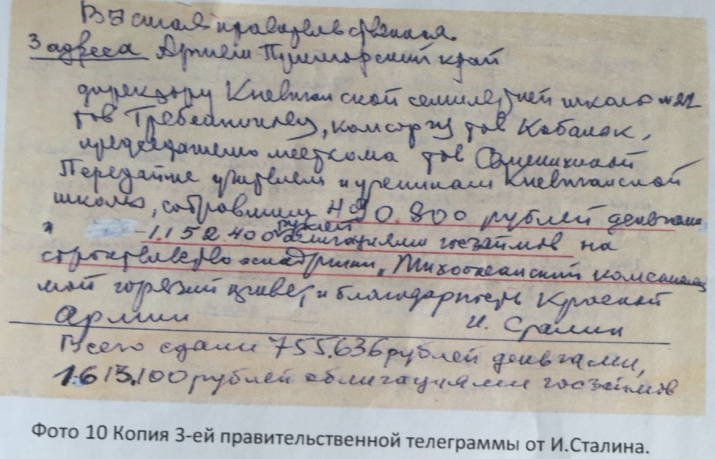 Высшая правительственная.
3 адреса Артем Приморский край
директору Кневичанской семилетней школы №22
тов Требеленовлеву, комсоргу тов Кобалок,
председателю месткома тов Семенихиной
Передайте учителям и ученикам Кневичанской
школы, собравшим 490.800 рублей деньгами
и 1.152.400 рублей облигациями госзаймов на
строительство эскадрильи „Тихоокеанский комсомолец
мой горячий привет и благодарность Красной
Армии И. Сталин
Всего сдали 755.636 рублей деньгами,
1.613.100 рублей облигациями госзаймов
Фото 10 Копия 3-ей правительственной телеграммы от И.Сталина.